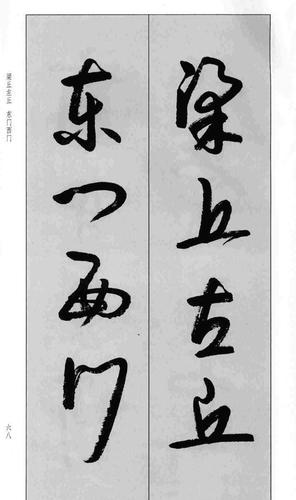 梁丘左丘
东门西门
梁丘左丘 东门西门
六八